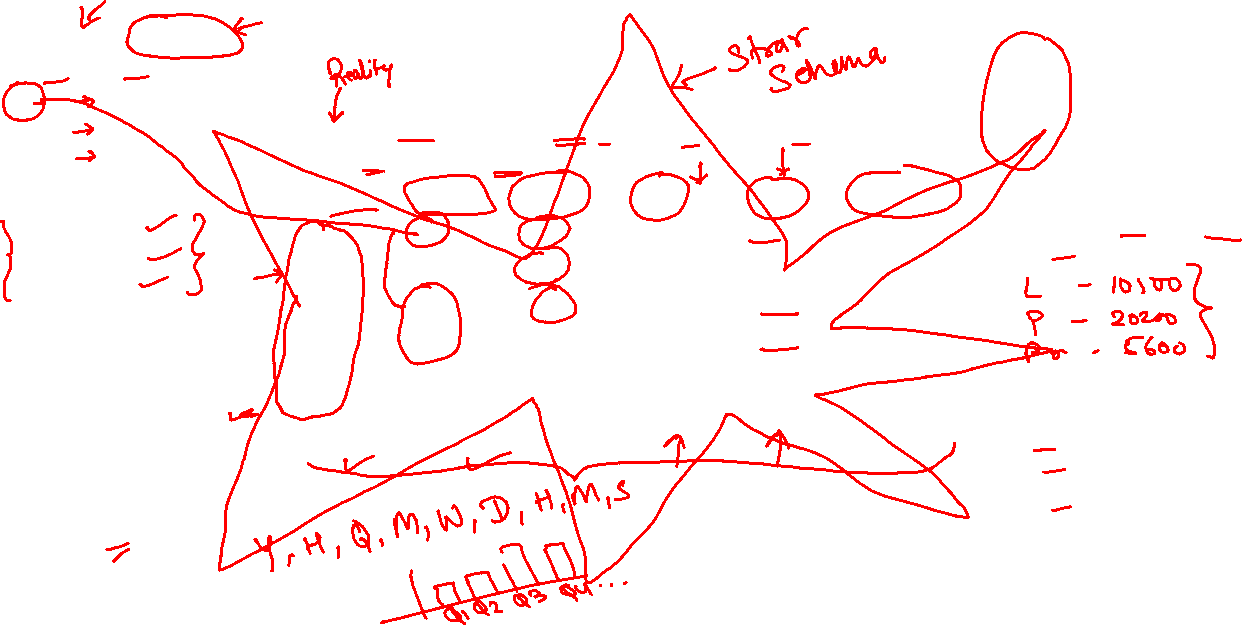 Reality
Strar
Schema
L - 10,500
P - 20200
- 5600
Y, H, Q, M, W, D, H, M, S
Q1 Q2 Q3 Q4 ...